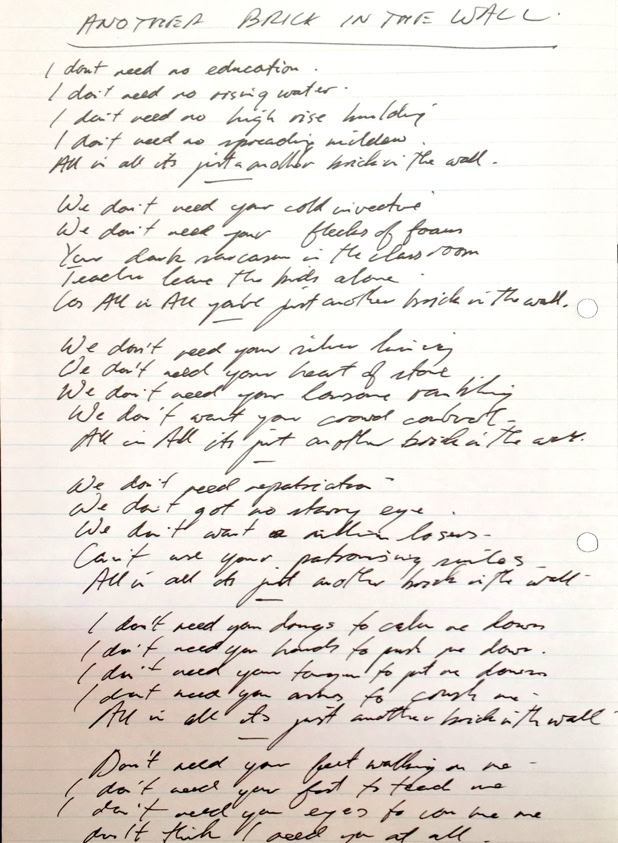 ANOTHER BRICK IN THE WALL.
I dont need no education.
I don't need no rising water.
I don't need no high rise building
I don't need no spreading mildew.
All in all its just another brick in the wall.
We don't need your cold invective
We don't need your flecks of foam
Your dark sarcasm in the class room
Teacher leave the kids alone
Cos All in All you're just another brick in the wall.
We don't need your silver lining
We don't need your heart of stone
We don't need your lonesome rambling
We don't want your crowd control
All in All its just another brick in the wall.
We don't need repatriation
We don't got no starry eye.
We don't want a million losers
Can't use your patronising smiles
All in all its just another brick in the wall
I don't need your drugs to calm me down
I don't need your hands to push me down.
I don't need your to put me down
I don't need your arms to me
All in all its just another brick in the wall
Don't need your feet walking on me
I don't need your to me
I don't need your eyes to me
don't think I need you at all.